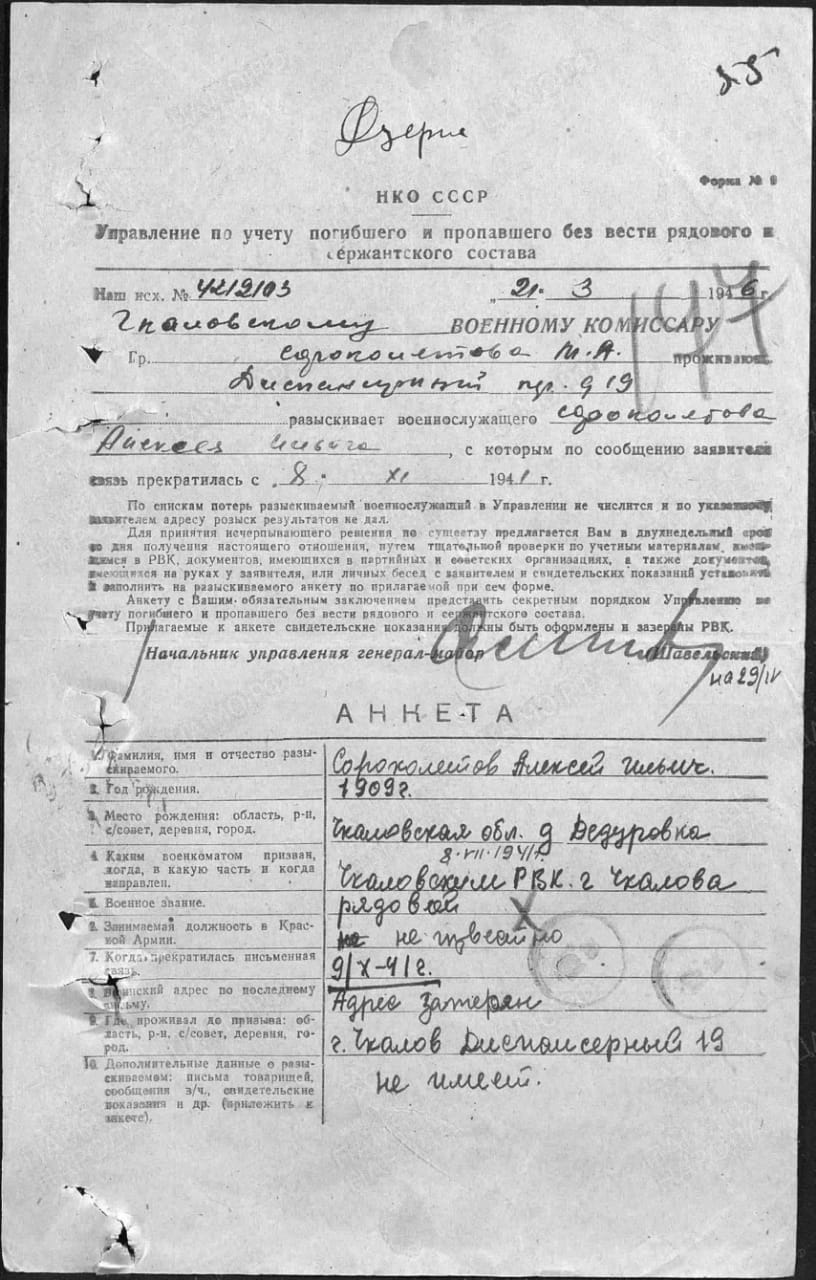 55
Форма № 9
НКО СССР
Управление по учету погибшего и пропавшего без вести рядового и
сержантского состава
Наш исх. № 4212103 „21" 3 1946 г.
Чкаловскому ВОЕННОМУ КОМИССАРУ
147
Гр. Сороколетова М.А. проживающ.
Диспансерный пер. д 19
разыскивает военнослужащего Сороколетова
Алексея Ильича, с которым по сообщению заявителя
связь прекратилась с „8" XI 1941 г.
По спискам потерь разыскиваемый военнослужащий в Управлении не числится и по указанному
заявителем адресу розыск результатов не дал.
Для принятия исчерпывающего решения по существу предлагается Вам в двухнедельный срок
со дня получения настоящего отношения, путем тщательной проверки по учетным материалам, имею-
щимся в РВК, документов, имеющихся в партийных и советских организациях, а также документов,
имеющихся на руках у заявителя, или личных бесед с заявителем и свидетельских показаний установить
и заполнить на разыскиваемого анкету по прилагаемой при сем форме.
Анкету с Вашим обязательным заключением представить секретным порядком Управлению по
учету погибшего и пропавшего без вести рядового и сержантского состава.
Прилагаемые к анкете свидетельские показания должны быть оформлены и заверены РВК.
Начальник управления генерал-майор (Шавельский)
на 29/IV
АНКЕТА
1. Фамилия, имя и отчество разы-
скиваемого.
Сороколетов Алексей Ильич.
2. Год рождения.
1909 г.
3. Место рождения: область, р-н,
с/совет, деревня, город.
Чкаловская обл. д Дедуровка
4. Каким военкоматом призван,
когда, в какую часть и когда
направлен.
8.VII.1941 г.
Чкаловским РВК. г Чкалова
5. Военное звание.
рядовой
6. Занимаемая должность в Крас-
ной Армии.
не не известно
7. Когда прекратилась письменная
связь.
9/X-41 г.
8. Воинский адрес по последнему
письму.
Адрес затерян
9. Где проживал до призыва: об-
ласть, р-н, с/совет, деревня, го-
род.
г. Чкалов Диспансерный 19
10. Дополнительные данные о разы-
скиваемом: письма товарищей,
сообщения в/ч., свидетельские
показания и др. (приложить к
анкете).
не имеет.